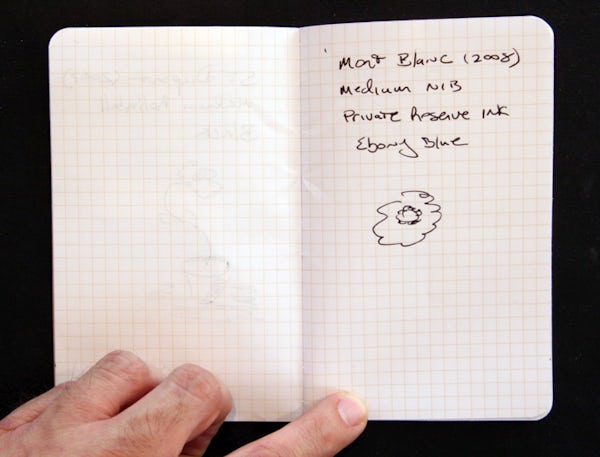 Mont Blanc (2008)
Medium NIB
Private Reserve Ink
Ebony Blue